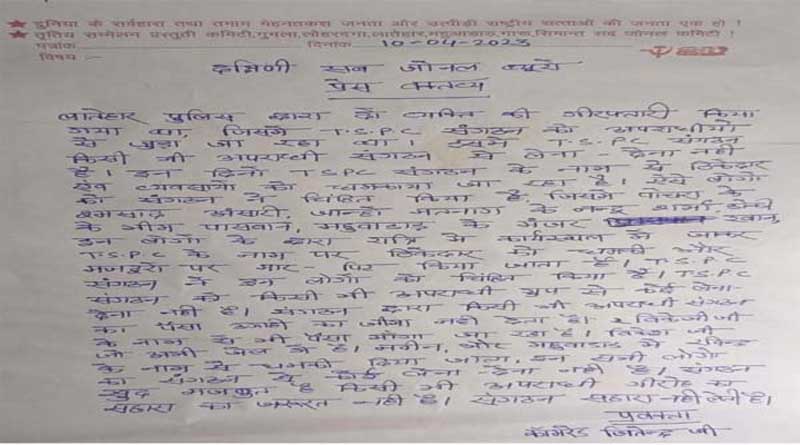 ★ दुनिया के सर्वहारा तथा तमाम मेहनतकश जनता और उत्पीड़ी राष्ट्रीय सत्ताओं की जनता एक हो !
★ तृतिय सम्मेलन प्रस्तुती कमिटी,गुमला,लोहरदगा,लातेहार,महुआडाड़,गारू,सिमान्त सब जोनल कमिटी !
पत्रांक दिनांक 10-04-2023
विषय :-
दक्षिणी सब जोनल ब्यूरो
प्रेस वक्तव्य
लातेहार पुलिस द्वारा दो व्यक्ति की गीरफ्तारी किया
गया था, जिसमें T.S.P.C संगठन को अपराधीयो
से जुड़ा जा रहा था। इसमें T.S.PC संगठन
किसी भी अपराधी संगठन से लेना-देना नही
है। इन दिनो T.SPC संगठन के नाम से ठिकेदार
एंव व्यवसायी को धमकाया जा रहा है। ऐसे लोगो
को संगठन ने चिंहित किया है, जिसमें के
अंसारी, के शर्मा,
के भीम पासवान, महुवाडाड़ के मंजर खान,
इन लोगो के द्वारा रात्रि में कार्यस्थल में जाकर
T.S.P.C के नाम पर ठिकेदार को धमकी और
मजदूरो पर मार-पिट किया जाता है। T.S.P.C
संगठन ने इन लोगो को चिंहित किया है। T.S.P.C
संगठन को किसी भी अपराधी ग्रुप से कोई लेना-
देना नही है। संगठन द्वारा किसी भी अपराधी संगठन
का पैसा उगाही का जीमा नही देना है।
के नाम से भी पैसा मांगा जा रहा है। जी
जो अभी जेल में है। और महुवाडाड़ में
के नाम से धमकी दिया जाता, इन सभी लोगो
का संगठन से कोई लेना देना नही है। संगठन
खुद मजबुत है किसी भी अपराधी गीरोह का
सहारा का जरूरत नही है। संगठन सहारा नही लेती है।
प्रवक्ता
कॉमरेड जितेन्द्र जी